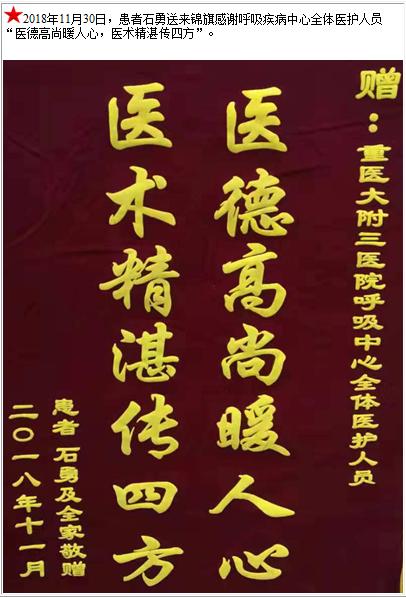 ★2018年11月30日，患者石勇送来锦旗感谢呼吸疾病中心全体医护人员
“医德高尚暖人心，医术精湛传四方”。
赠：重医大附三医院呼吸中心全体医护人员
医德高尚暖人心
医术精湛传四方
患者 石勇及全家敬赠
二〇一八年十一月